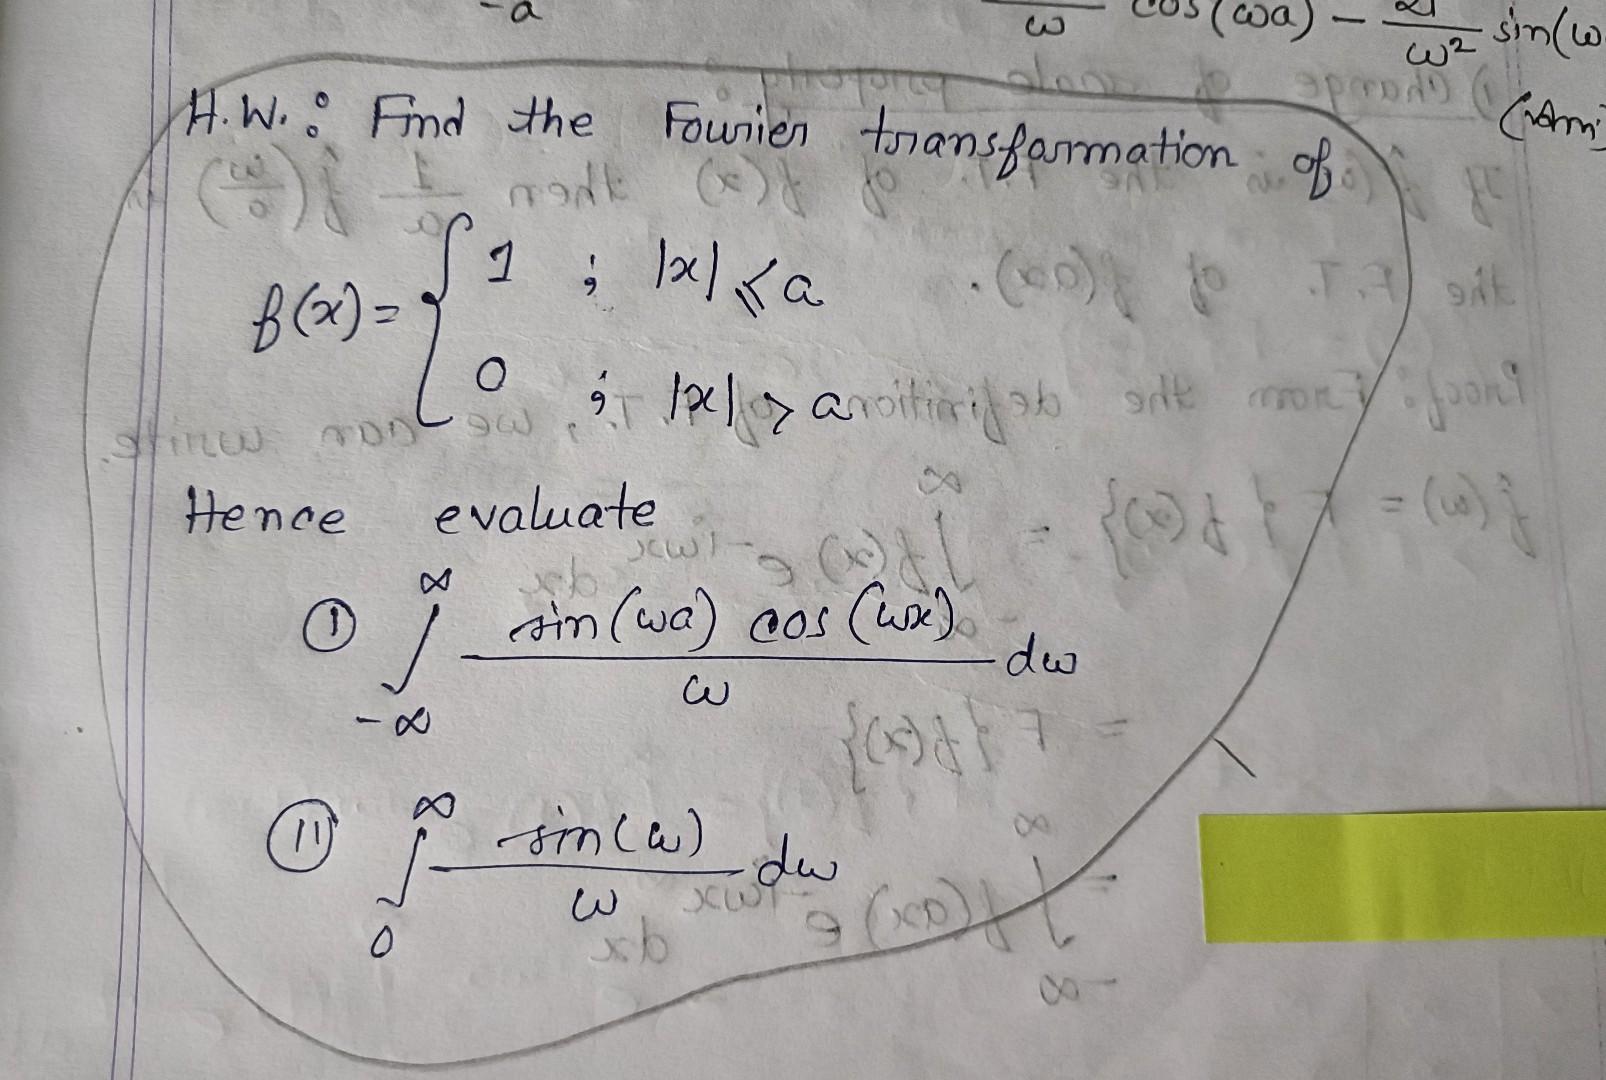 -a
ω cos(ωa) - 2i/ω² sin(ω
(Ans
H.W.: Find the Fourier transformation of
f(x) = { 1 ; |x| ≤ a
0 ; |x| > a
Hence evaluate
① ∫_{-∞}^{∞} sin(ωa) cos(ωx) / ω dω
② ∫_{0}^{∞} sin(ω) / ω dω